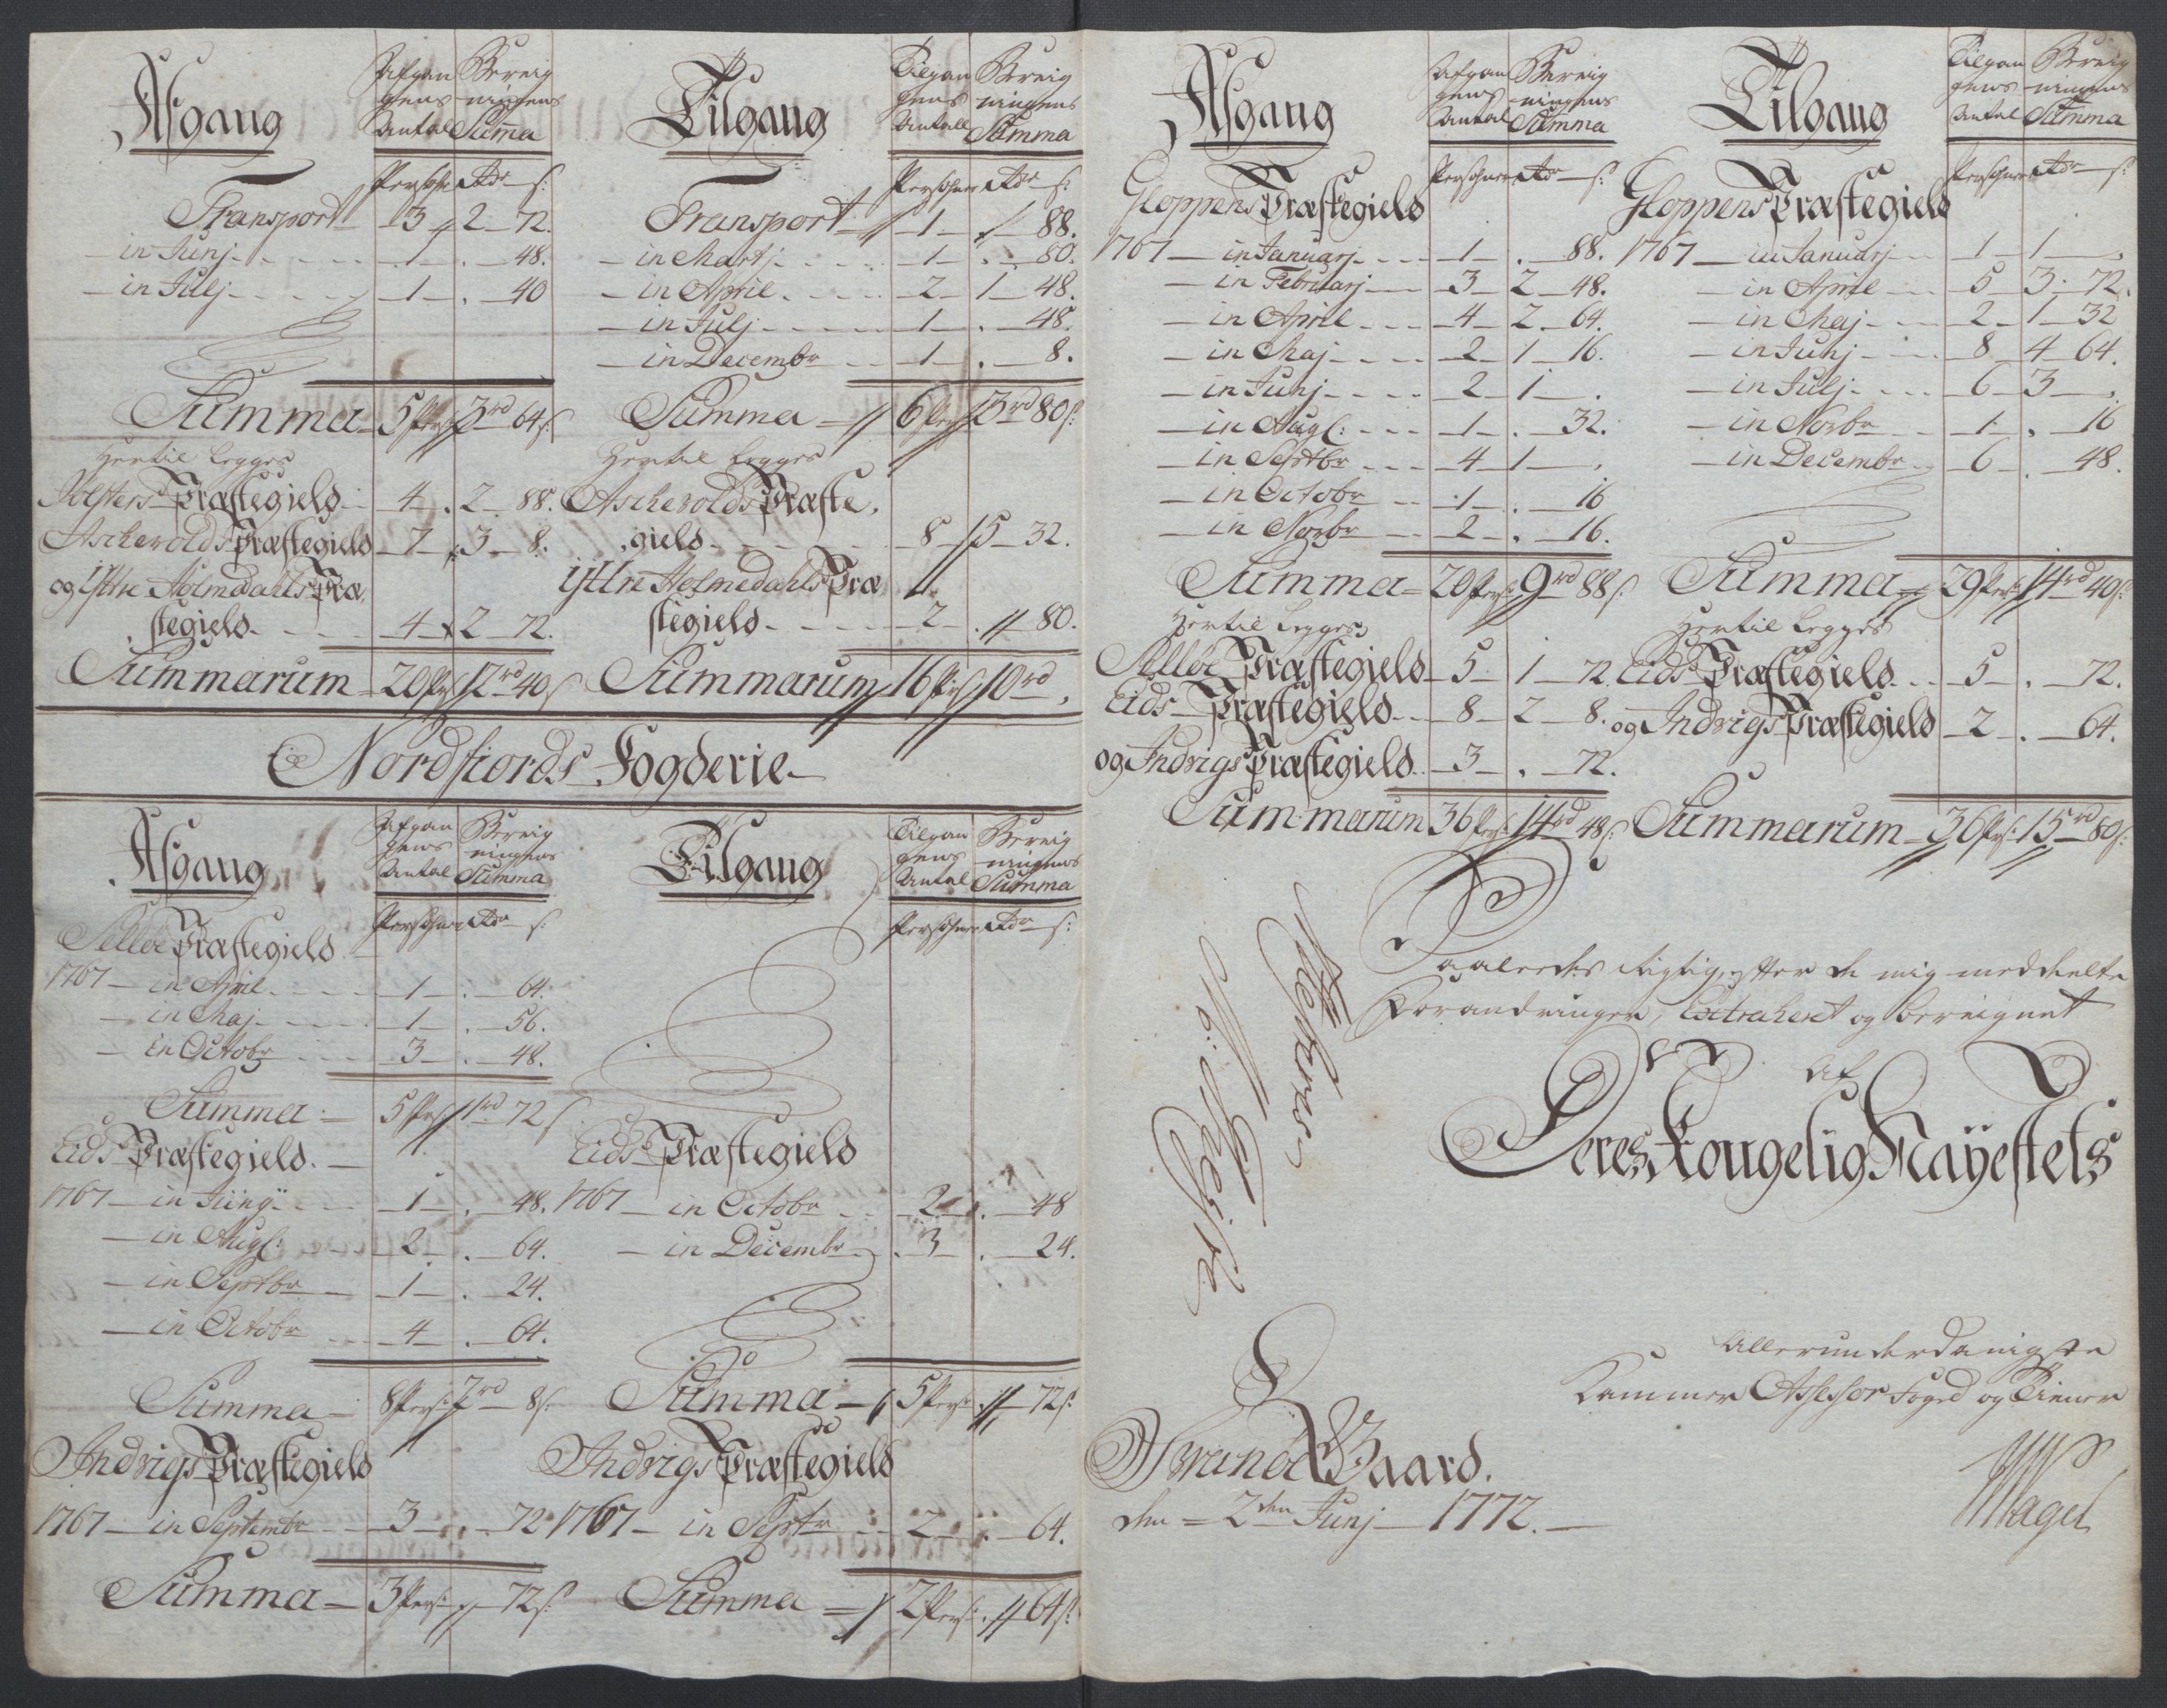 Afgang
Afgan Bereig
gens ningens
Antal Summa
Persohner Rdr s:
Transport 3 2 72.
in Junj 1 . 48.
in Julj 1 . 40
Summa 5 Pers: 3 rd 64 s:
Hertil Legges
Jølsters Præstegield 4 2 88.
Ascherolds Præstegield 7 3 8.
og Yttre Holmedahls Præ
stegield 4 2 72.
Summarum 20 Pers 12 rd 40 s
Tilgang
Tilgan Bereig
gens ningens
Antall Summa
Persohner Rdr s:
Transport 1 88.
in Martj 1 . 80.
in April 2 1 48.
in Julj 1 . 48.
in Decembr 1 . 8.
Summa 6 Pers 3 rd 80 s:
Hertil Legges
Ascherolds Præste
gield 8 5 32.
Yttre Holmedahls Præ
stegield 2 . 80.
Summarum 16 Pers 10 rd
Nordfiords Fogderie
Afgang
Afgan Bereig
gens ningens
Antal Summa
Persohner Rdr s:
Selløe Præstegield
1767 in April 1 . 64.
in Maj 1 . 56.
in Octobr 3 . 48.
Summa 5 Prs: 1 rd 72 s
Eids Præstegield
1767 in Junij 1 . 48.
in Augs: 2 . 64.
in Septbr 1 . 24.
in Octobr 4 . 64.
Summa 8 Pers: 2 rd 8 s:
Indvigs Præstegield
1767 in Septembr 3 . 72
Summa 3 Pers: 72 s:
Tilgang
Tilgan Bereig
gens ningens
Antal Summa
Persohner Rdr s:
Eids Præstegield
1767 in Octobr 2 . 48
in Decembr 3 . 24.
Summa 5 Pers: 72 s:
Indvigs Præstegield
1767 in Septr 2 . 64.
Summa 2 Pers: 64 s:
Afgang
Afgan Bereig
gens ningens
Antal Summa
Persohner Rdr s:
Gloppens Præstegield
1767 in Januarj 1 . 88.
in Februarj 3 2 48.
in April 4 2 64.
in Maj 2 1 16.
in Junj 2 1 .
in Augs: 1 . 32.
in Septbr 4 1 .
in Octobr 1 . 16
in Novbr 2 . 16.
Summa 20 Pers: 9 rd 88 s:
Hertil Legges
Selløe Præstegield 5 1 72
Eids Præstegield 8 2 8.
og Indvigs Præstegield 3 . 72.
Summarum 36 Prs: 14 rd 48 s:
Tilgang
Tilgan Bereig
gens ningens
Antal Summa
Persohner Rdr s:
Gloppens Præstegield
1767 in Januarj 1 1 .
in April 5 3 72.
in Maj 2 1 32
in Junj 8 4 64.
in Julj 6 3 .
in Novbr 1 . 16
in Decembr 6 . 48.
Summa 29 Pers: 14 rd 40 s:
Hertil Legges
Eids Præstegield 5 . 72.
og Indvigs Præstegield 2 . 64.
Summarum 36 Prs: 15 rd 80 s:
Saaledes rigtig, efter de mig meddeelte
Forandringer, Extraheret og bereignet
af
Deres Kongelig Mayestets
Allerunderdanigste
Kammer Assessor Foged og Tiener
Svanøe Gaard.
den 2den Junj 1772.